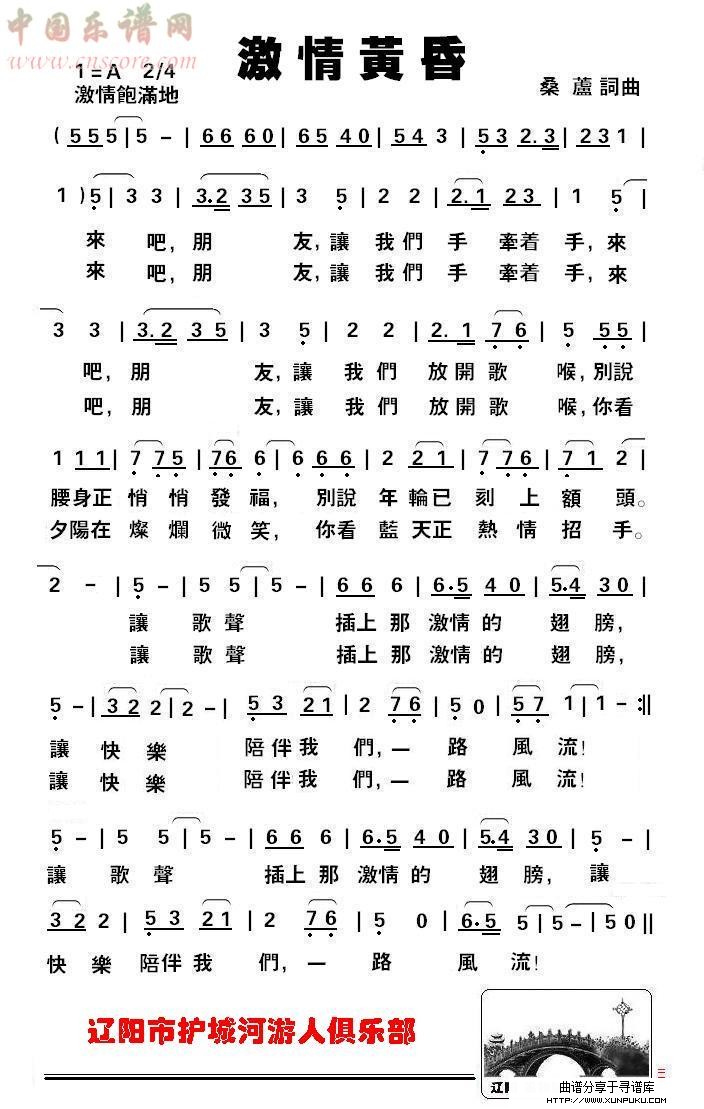 中国乐谱网
www.cnscore.com
激情黃昏
1=A 2/4
激情飽滿地
桑蘆詞曲
( 5 5 5 5 | 5 - | 6 6 6 0 | 6 5 4 0 | 5 4 3 | 5 3 2. 3 | 2 3 1 |
1 ) 5 | 3 3 | 3. 2 3 5 | 3 5 | 2 2 | 2. 1 2 3 | 1 5 |
來 吧, 朋 友, 讓 我 們 手 牽着 手, 來
來 吧, 朋 友, 讓 我 們 手 牽着 手, 來
3 3 | 3. 2 3 5 | 3 5 | 2 2 | 2. 1 7 6 | 5 5 5 |
吧, 朋 友, 讓 我 們 放開歌 喉, 別說
吧, 朋 友, 讓 我 們 放開歌 喉, 你看
1 1 1 | 7 7 5 | 7 6 6 | 6 6 6 | 2 2 1 | 7 7 6 | 7 1 2 |
腰身正 悄 悄 發 福, 別說 年 輪已 刻 上 額 頭。
夕陽在 燦 爛 微 笑, 你看 藍 天正 熱 情 招 手。
2 - | 5 - | 5 5 | 5 - | 6 6 6 | 6. 5 4 0 | 5. 4 3 0 |
讓 歌 聲 插上那 激情的 翅 膀,
讓 歌 聲 插上那 激情的 翅 膀,
5 - | 3 2 2 | 2 - | 5 3 2 1 | 2 7 6 | 5 0 | 5 7 1 | 1 - :||
讓 快 樂 陪伴我 們, 一 路 風 流!
讓 快 樂 陪伴我 們, 一 路 風 流!
5 - | 5 5 | 5 - | 6 6 6 | 6. 5 4 0 | 5. 4 3 0 | 5 - |
讓 歌 聲 插上那 激情的 翅 膀, 讓
3 2 2 | 2 - | 5 3 2 1 | 2 7 6 | 5 0 | 6. 5 5 | 5 - | 5 0 ||
快 樂 陪伴我 們, 一 路 風 流!
辽阳市护城河游人俱乐部
辽
三
曲谱分享于寻谱库
HTTP://WWW.XUNPUKU.COM